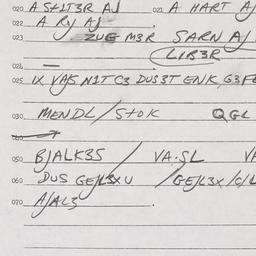 020 A St1T3R AJ 021 A HART AJ
022 A RY AJ
023 ZUE M3R SARN AJ
LIB3R
025 IX VAJ5 N1T C3 DUS3T ENK, G3FE
030 MENDL / StOK QGL
050 BJALK3S / VA.SL VA
060 DUS GEJL3XU / GEJL3X/C/L
070 AJAL3